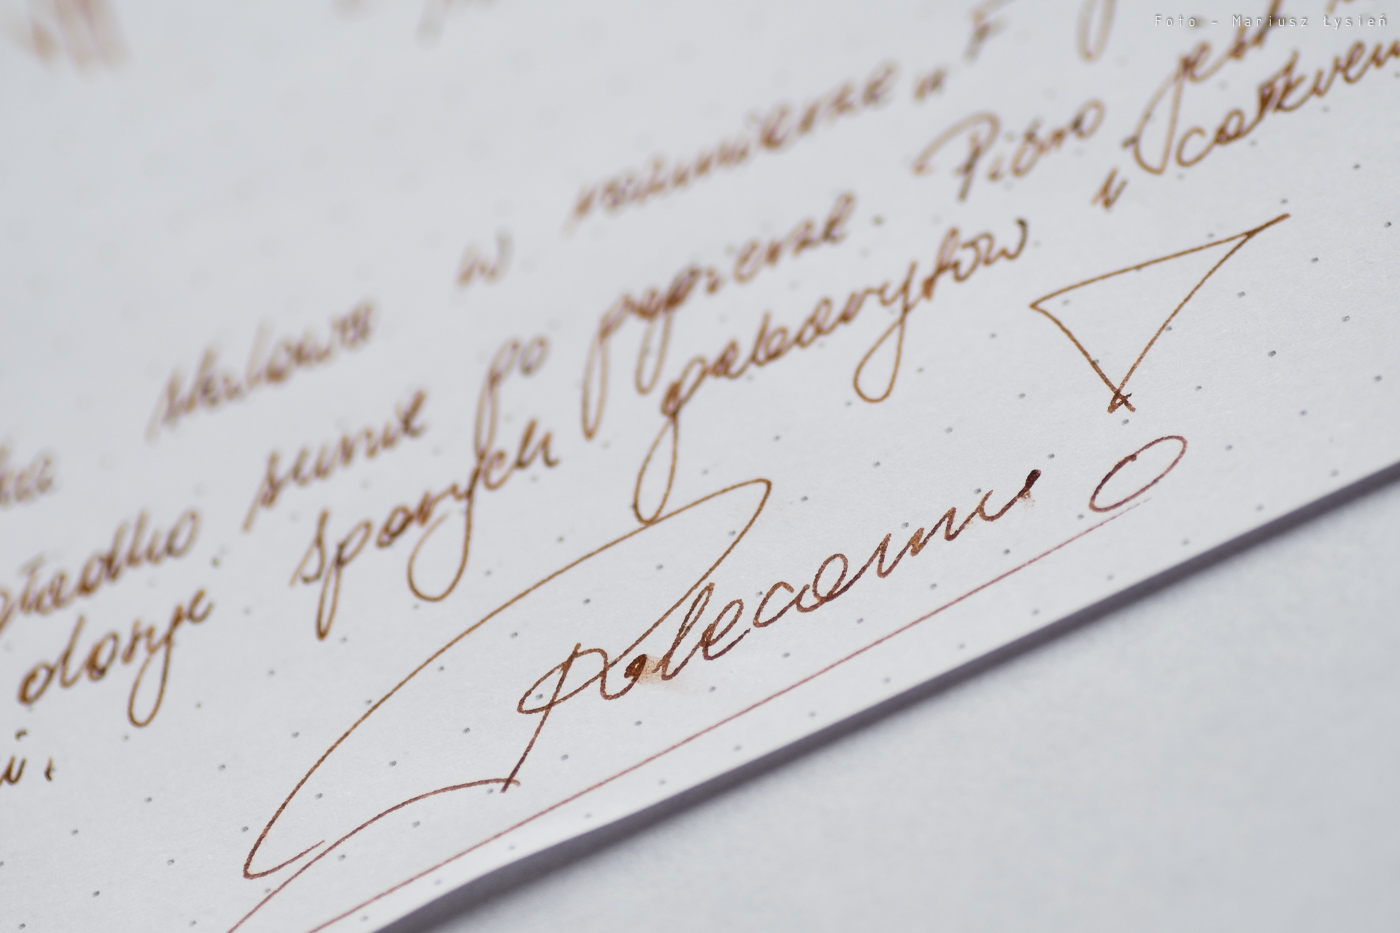 Foto - Mariusz Łysień
stalowa w rozmiarze „F
gładko sunie po papierze. Pióro jest
dosyć sporych gabarytów i
Polecam